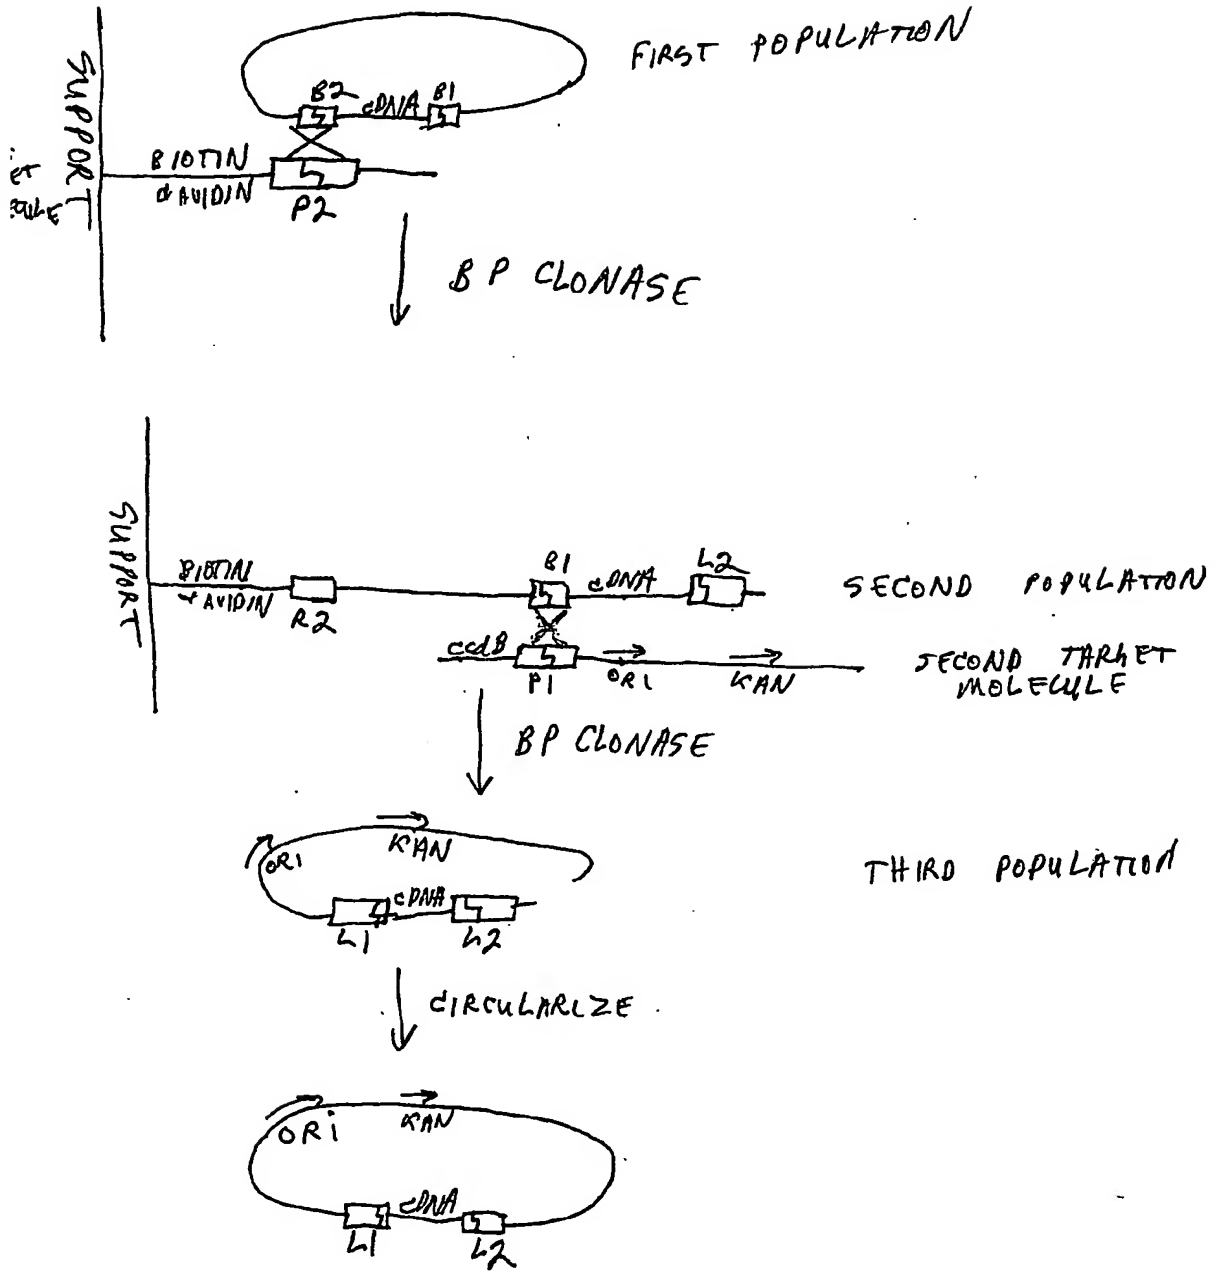 FIRST POPULATION
B2
cDNA
B1
SUPPORT
BIOTIN
AVIDIN
P2
BP CLONASE
SUPPORT
BIOTIN
AVIDIN
R2
B1
cDNA
L2
SECOND POPULATION
ccdB
P1
ORI
KAN
SECOND TARGET
MOLECULE
BP CLONASE
ORI
KAN
THIRD POPULATION
L1
cDNA
L2
CIRCULARIZE
ORi
KAN
L1
cDNA
L2